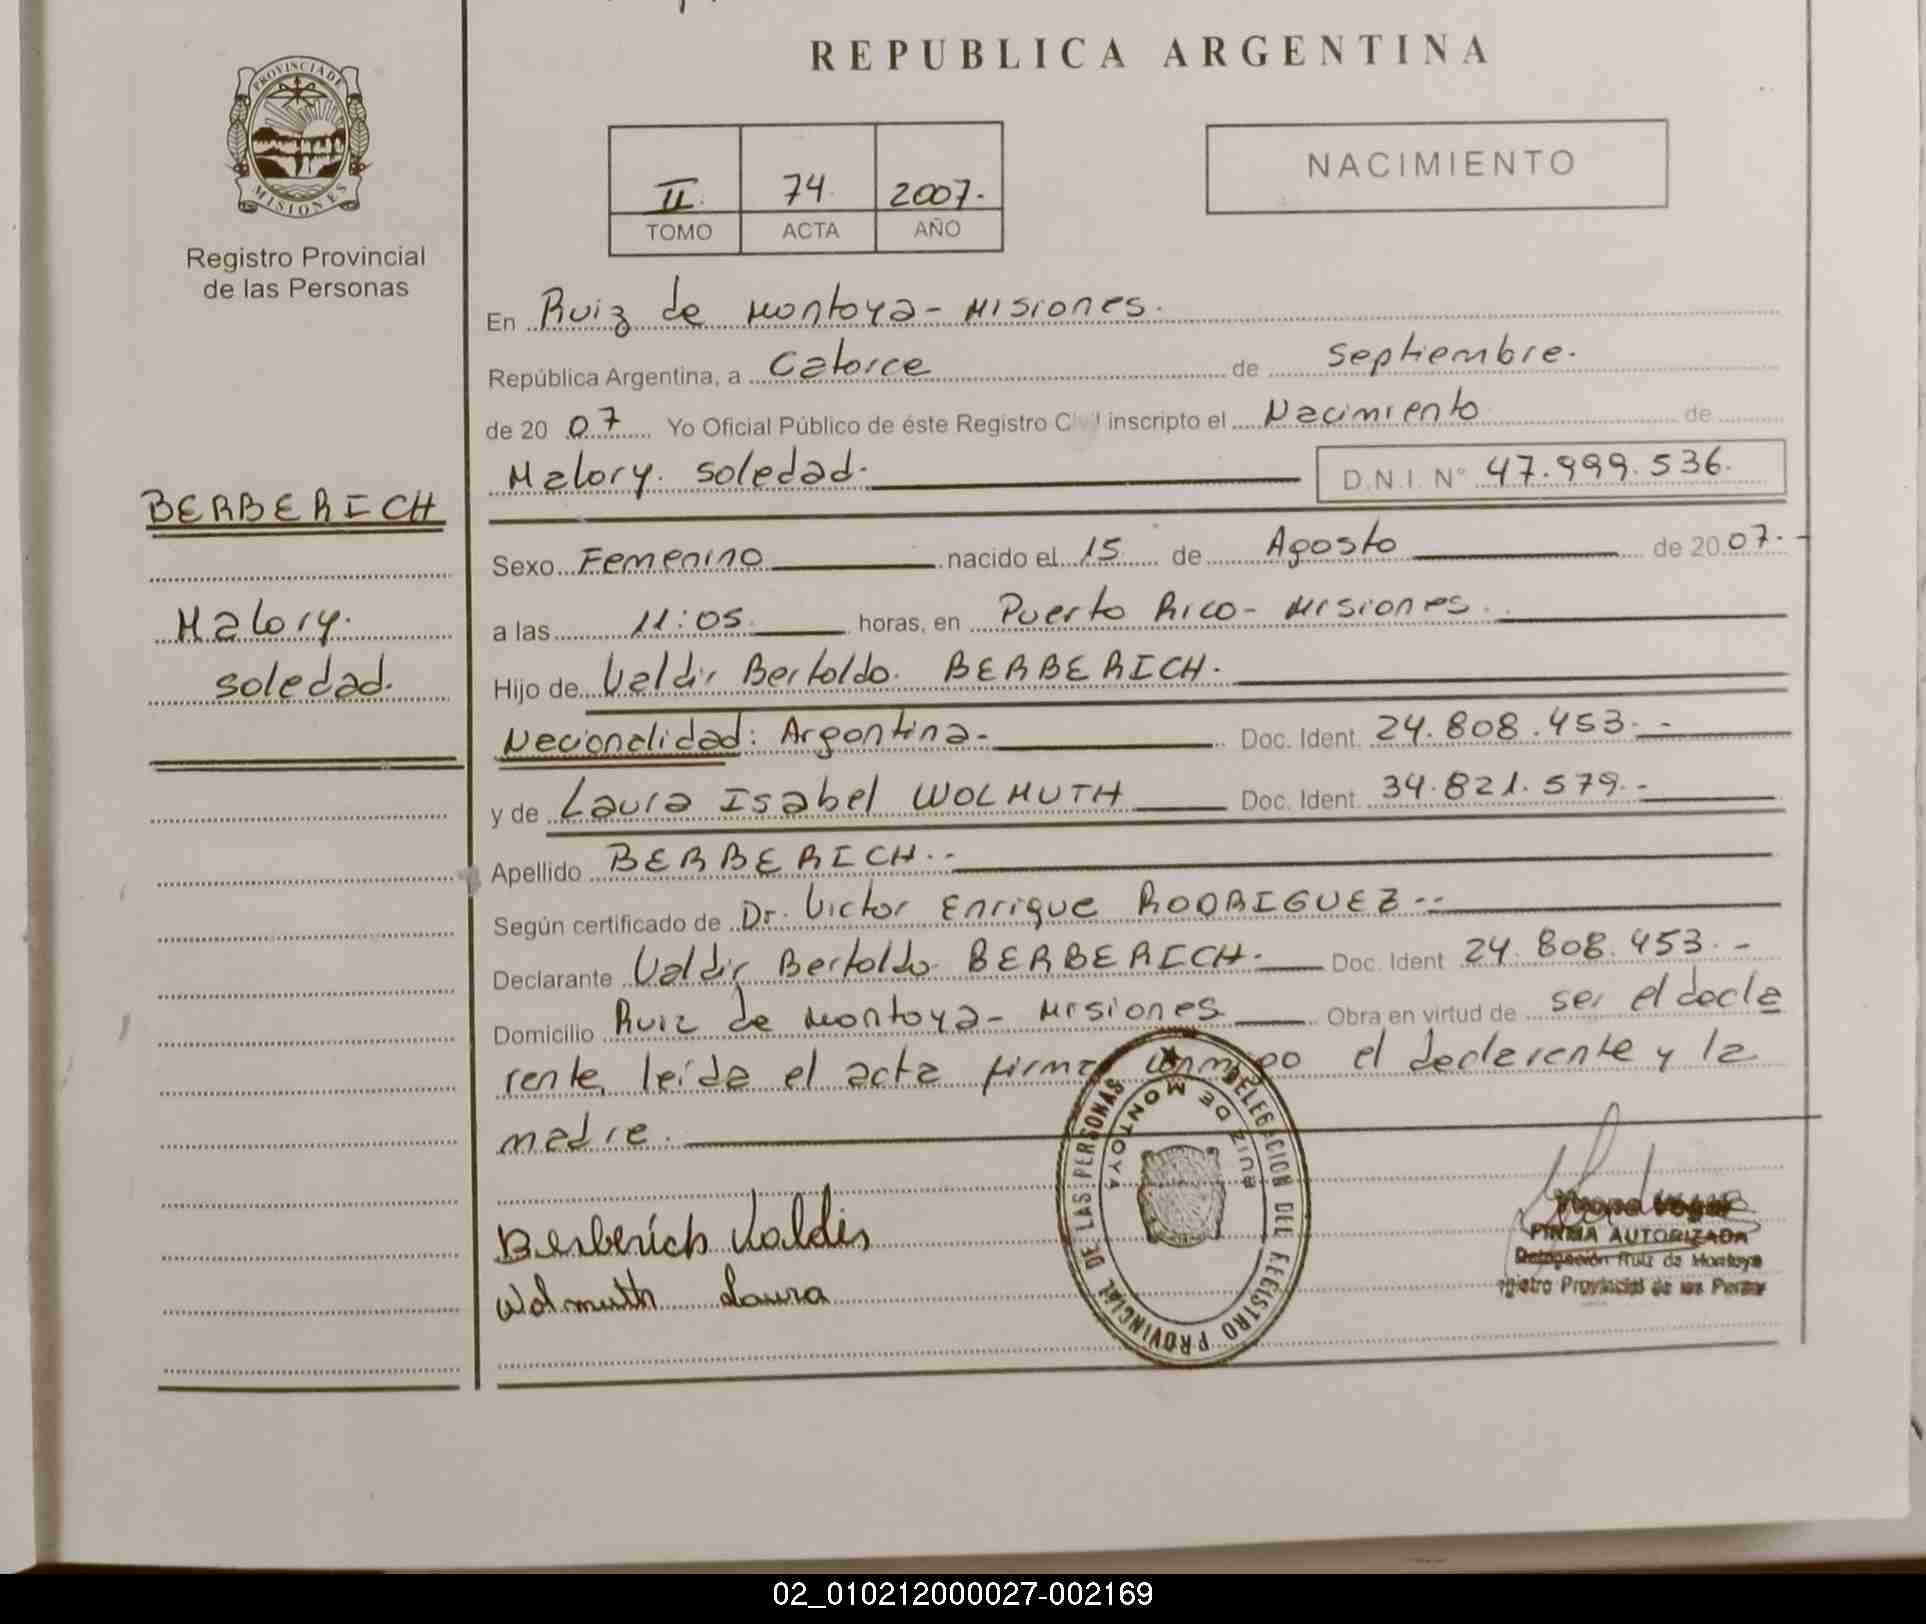 REPUBLICA ARGENTINA
PROVINCIA DE
MISIONES
Registro Provincial
de las Personas
II. 74. 2007.-
TOMO ACTA AÑO
NACIMIENTO
BERBERICH
Malory.
soledad.
En Ruiz de Montoya - Misiones.
República Argentina, a Catorce de septiembre.
de 20 07 Yo Oficial Público de éste Registro Civil inscripto el Nacimiento de
Malory. soledad.
D.N.I. N° 47.999.536.
Sexo Femenino nacido el 15 de Agosto de 20 07.-
a las 11:05 horas, en Puerto Rico - Misiones.
Hijo de Valdir Bertoldo. BERBERICH.
Nacionalidad: Argentina.- Doc. Ident. 24.808.453.-
y de Laura Isabel WOLMUTH Doc. Ident. 34.821.579.-
Apellido BERBERICH.-
Según certificado de Dr. Victor Enrique RODRIGUEZ--
Declarante Valdir Bertoldo BERBERICH.- Doc. Ident 24.808.453.-
Domicilio Ruiz de Montoya - Misiones Obra en virtud de ser el decla
rente, leída el acta firma conmigo el declarente y la
madre.
Berberich Valdir
Wolmuth Laura
DELEGACION DEL REGISTRO PROVINCIAL DE LAS PERSONAS
RUIZ DE MONTOYA
FIRMA AUTORIZADA
Delegación Ruiz de Montoya
Registro Provincial de las
02_010212000027-002169